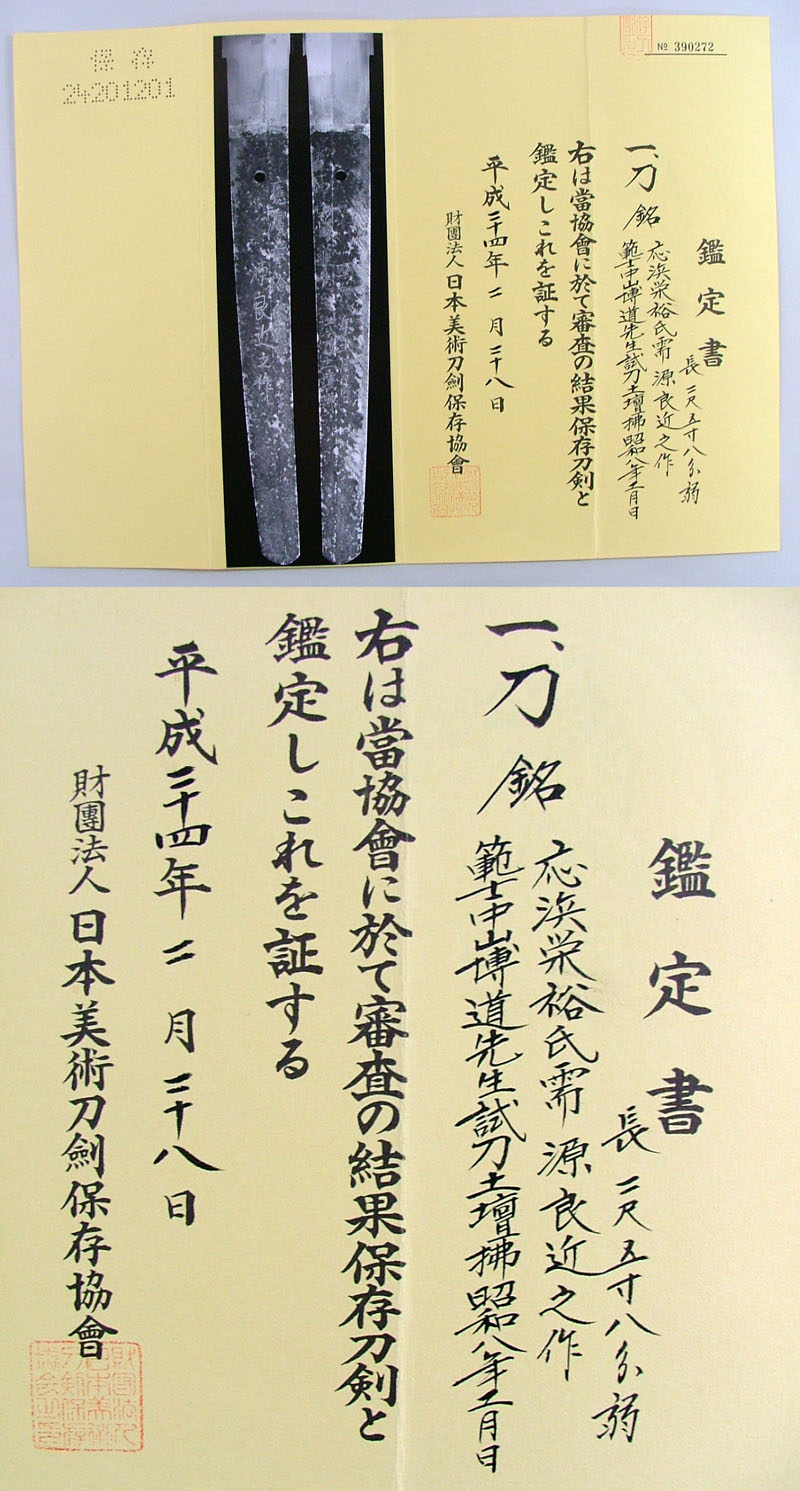 保存
24201201
№ 390272
鑑定書
長二尺五寸八分弱
一、刀 銘
応浜栄裕氏需 源良近之作
範士中山博道先生試刀土壇拂昭和八年二月日
右は當協會に於て審査の結果保存刀剣と
鑑定しこれを証する
平成二十四年二月二十八日
財團法人日本美術刀劍保存協會
源良近之作
鑑定書
長二尺五寸八分弱
一、刀 銘
応浜栄裕氏需 源良近之作
範士中山博道先生試刀土壇拂昭和八年二月日
右は當協會に於て審査の結果保存刀剣と
鑑定しこれを証する
平成二十四年二月二十八日
財團法人日本美術刀劍保存協會